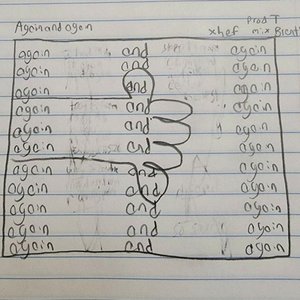 Again and again
Prod T
xhef mix Blend
again and again
again and again
again and again
again and again
again and again
again and again
again and again
again and again
again and again
again and again
again and again